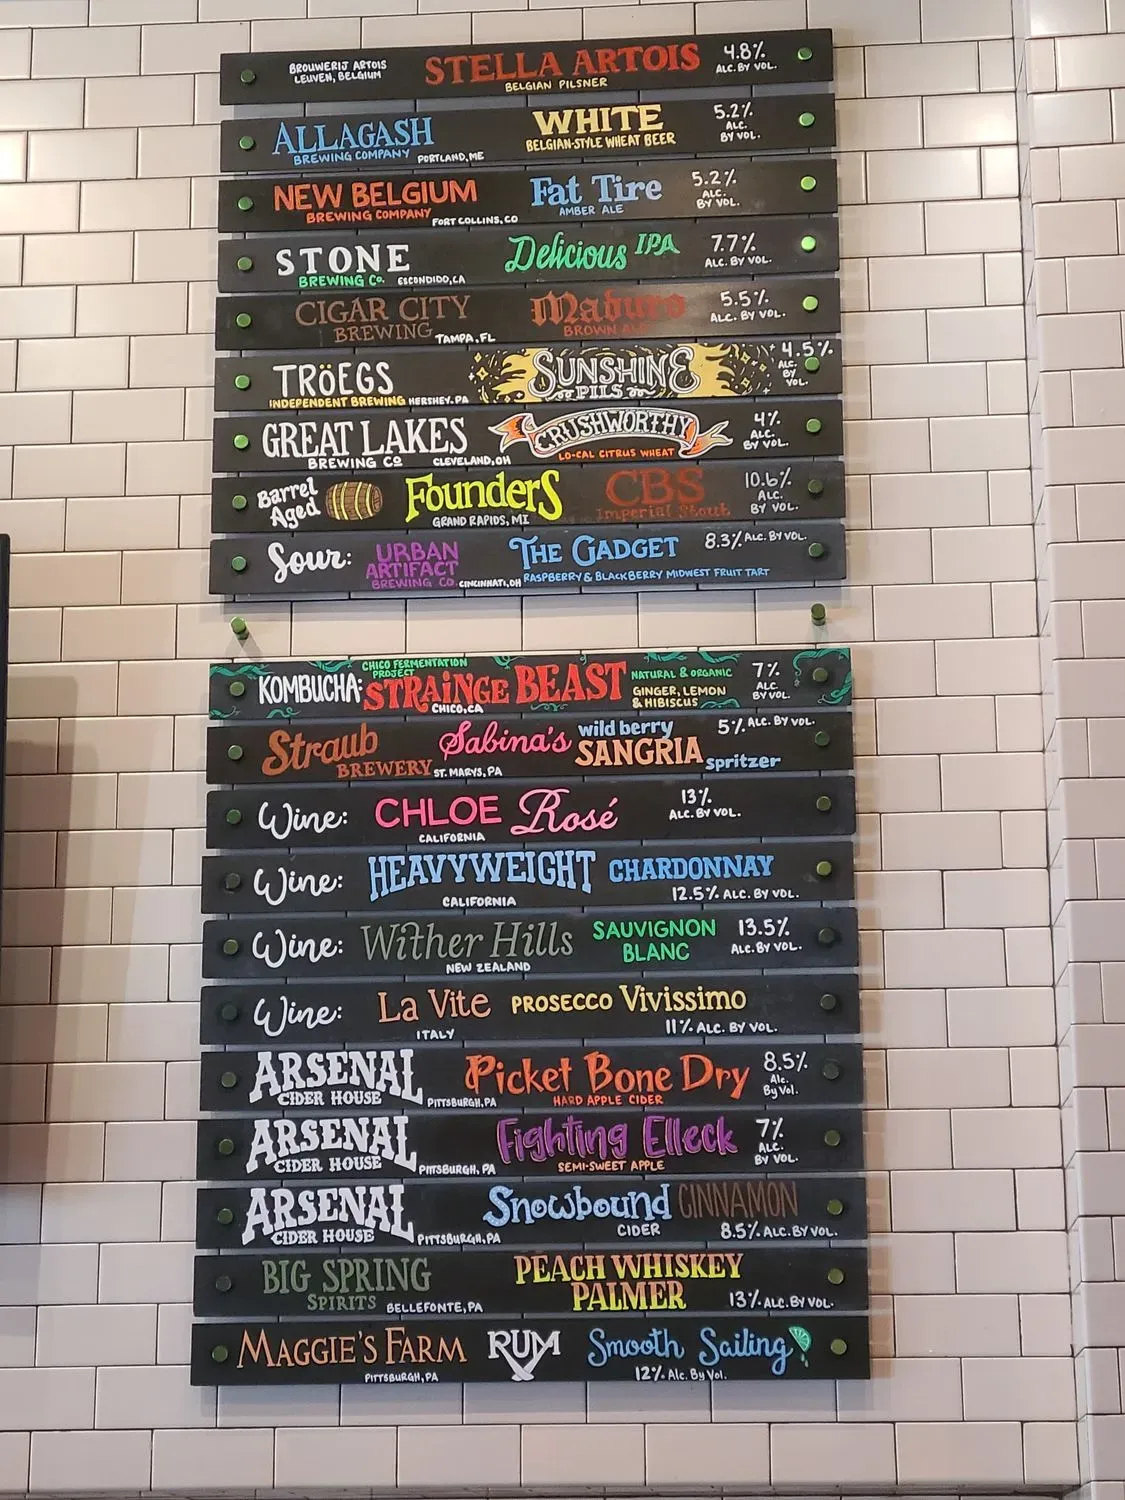 BROUWERIJ ARTOIS
LEUVEN, BELGIUM
STELLA ARTOIS
BELGIAN PILSNER
4.8%
ALC. BY VOL.
ALLAGASH
BREWING COMPANY PORTLAND, ME
WHITE
BELGIAN-STYLE WHEAT BEER
5.2%
ALC.
BY VOL.
NEW BELGIUM
BREWING COMPANY FORT COLLINS, CO
Fat Tire
AMBER ALE
5.2%
ALC.
BY VOL.
STONE
BREWING Co. ESCONDIDO, CA
Delicious IPA
7.7%
ALC. BY VOL.
CIGAR CITY
BREWING TAMPA, FL
Maduro
BROWN ALE
5.5%
ALC. BY VOL.
TRöEGS
INDEPENDENT BREWING HERSHEY, PA
SUNSHINE
PILS
4.5%
ALC.
BY
VOL.
GREAT LAKES
BREWING CO CLEVELAND, OH
CRUSHWORTHY
LO-CAL CITRUS WHEAT
4%
ALC.
BY VOL.
Barrel
Aged
FounderS
GRAND RAPIDS, MI
CBS
Imperial Stout
10.6%
ALC.
BY VOL.
Sour:
URBAN
ARTIFACT
BREWING CO. CINCINNATI, OH
THE GADGET
RASPBERRY & BLACKBERRY MIDWEST FRUIT TART
8.3% ALC. BY VOL.
KOMBUCHA:
CHICO FERMENTATION
PROJECT
STRAiNGE BEAST
CHICO, CA
NATURAL & ORGANIC
GINGER, LEMON
& HIBISCUS
7%
ALC.
BY VOL.
Straub
BREWERY ST. MARYS, PA
Sabina's
wild berry
SANGRIA
spritzer
5% ALC. BY VOL.
Wine:
CHLOE Rosé
CALIFORNIA
13%
ALC. BY VOL.
Wine:
HEAVYWEIGHT CHARDONNAY
CALIFORNIA
12.5% ALC. BY VOL.
Wine:
Wither Hills
NEW ZEALAND
SAUVIGNON
BLANC
13.5%
ALC. BY VOL.
Wine:
La Vite PROSECCO Vivissimo
ITALY
11% ALC. BY VOL.
ARSENAL
CIDER HOUSE PITTSBURGH, PA
Picket Bone Dry
HARD APPLE CIDER
8.5%
Alc.
By Vol.
ARSENAL
CIDER HOUSE PITTSBURGH, PA
Fighting Elleck
SEMI-SWEET APPLE
7%
ALC.
BY VOL.
ARSENAL
CIDER HOUSE PITTSBURGH, PA
Snowbound CINNAMON
CIDER
8.5% ALC. BY VOL.
BIG SPRING
SPIRITS BELLEFONTE, PA
PEACH WHISKEY
PALMER
13% ALC. BY VOL.
MAGGIE'S FARM
PITTSBURGH, PA
RUM
Smooth Sailing
12% Alc. By Vol.